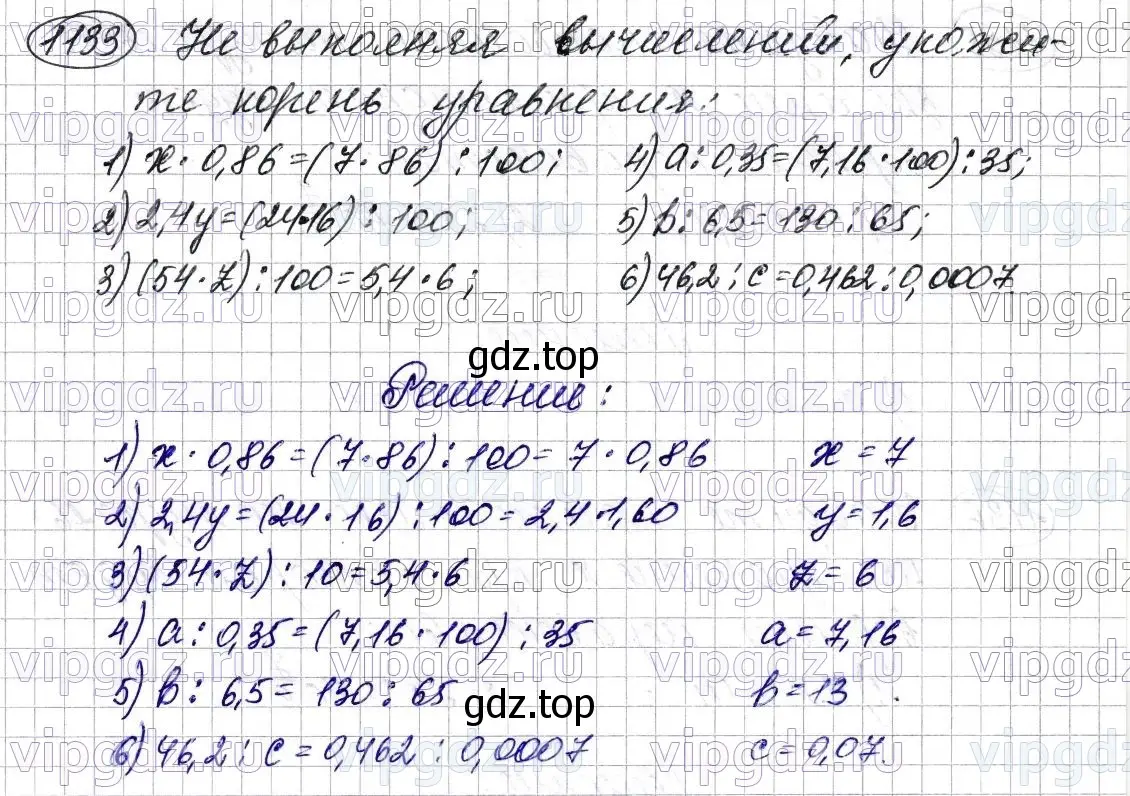 1133 Не выполняя вычислений, укажи-
те корень уравнения:
1) x · 0,86 = (7 · 86) : 100; 4) a : 0,35 = (7,16 · 100) : 35;
2) 2,4y = (24 · 16) : 100; 5) b : 6,5 = 130 : 65;
3) (54 · z) : 100 = 5,4 · 6; 6) 46,2 : c = 0,462 : 0,0007.
gdz.top
Решение:
1) x · 0,86 = (7 · 86) : 100 = 7 · 0,86 x = 7
2) 2,4y = (24 · 16) : 100 = 2,4 · 1,60 y = 1,6
3) (54 · z) : 10 = 5,4 · 6 z = 6
4) a : 0,35 = (7,16 · 100) : 35 a = 7,16
5) b : 6,5 = 130 : 65 b = 13.
gdz.top
6) 46,2 : c = 0,462 : 0,0007 c = 0,07.
vipgdz.ru